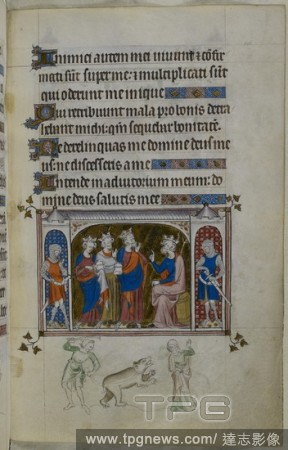 Inimici autem mei uiuunt ⁊ cōfir
mati sūt super me: ⁊ multiplicati sūt
qui oderunt me inique
Qui retribuunt mala pro bonis detra
hebant michi: qm̄ sequebar bonitatē.
Ne derelinquas me domine deus me
us: ne discesseris a me
Intende in adiutorium meum: do
mine deus salutis mee
TPG
www.tpgnews.com/ 達志影像